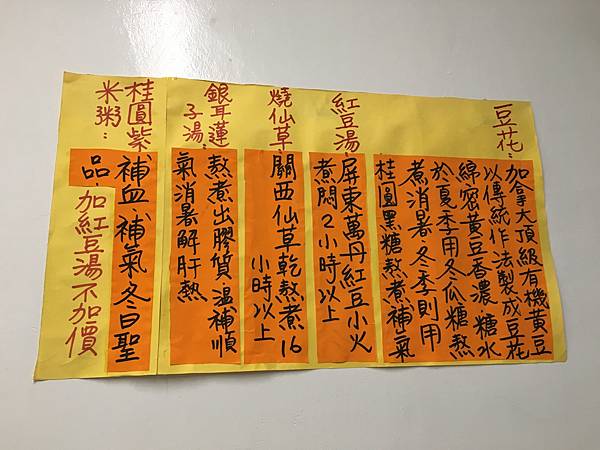 豆花：
加拿大頂級有機黃豆
以傳統作法製成豆花
綿密黃豆香濃糖水
於夏季用冬瓜糖熬
煮消暑、冬季則用
桂圓黑糖熬煮補氣
紅豆湯：
屏東萬丹紅豆小火
煮悶2小時以上
燒仙草：
關西仙草乾熬煮16
小時以上
銀耳蓮
子湯：
熬煮出膠質溫補順
氣消暑解肝熱
桂圓紫
米粥：
補血、補氣冬日聖
品、加紅豆湯不加價